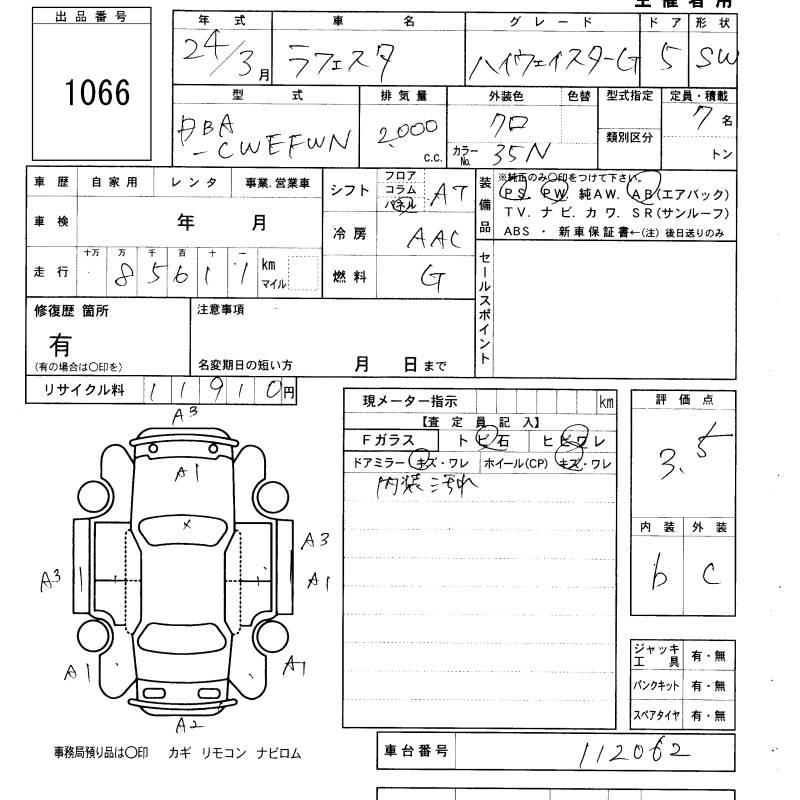 主催者用
出品番号
1066
年式 車名 グレード ドア 形状
24/3月 ラフェスタ ハイウェイスターG 5 SW
型式 排気量 外装色 色替 型式指定 定員・積載
DBA 2,000 クロ 7名
-CWEFWN c.c. カラーNo. 35N 類別区分 トン
車歴 自家用 レンタ 事業.営業車
シフト フロア コラム パネル AT
装備品 ※純正のみ〇印をつけて下さい。
PS. PW. 純AW. AB(エアバック)
TV. ナビ. カワ. SR(サンルーフ)
ABS ・ 新車保証書←(注) 後日送りのみ
車検 年 月
冷房 AAC
走行 十万 万 千 百 十 一
85611 km
マイル
燃料 G
セールスポイント
修復歴 箇所
有
(有の場合は〇印を)
注意事項
名変期日の短い方 月 日まで
リサイクル料 11910円
現メーター指示 km
【査定員記入】
Fガラス トビ石 ヒビワレ
ドアミラー キズ・ワレ ホイール(CP) キズ・ワレ
内装汚れ
評価点
3.5
内装 外装
b C
A3
A1
X
A3
A3 A1
A1 A1
A2
ジャッキ工具 有・無
パンクキット 有・無
スペアタイヤ 有・無
事務局預り品は〇印 カギ リモコン ナビロム
車台番号 112062